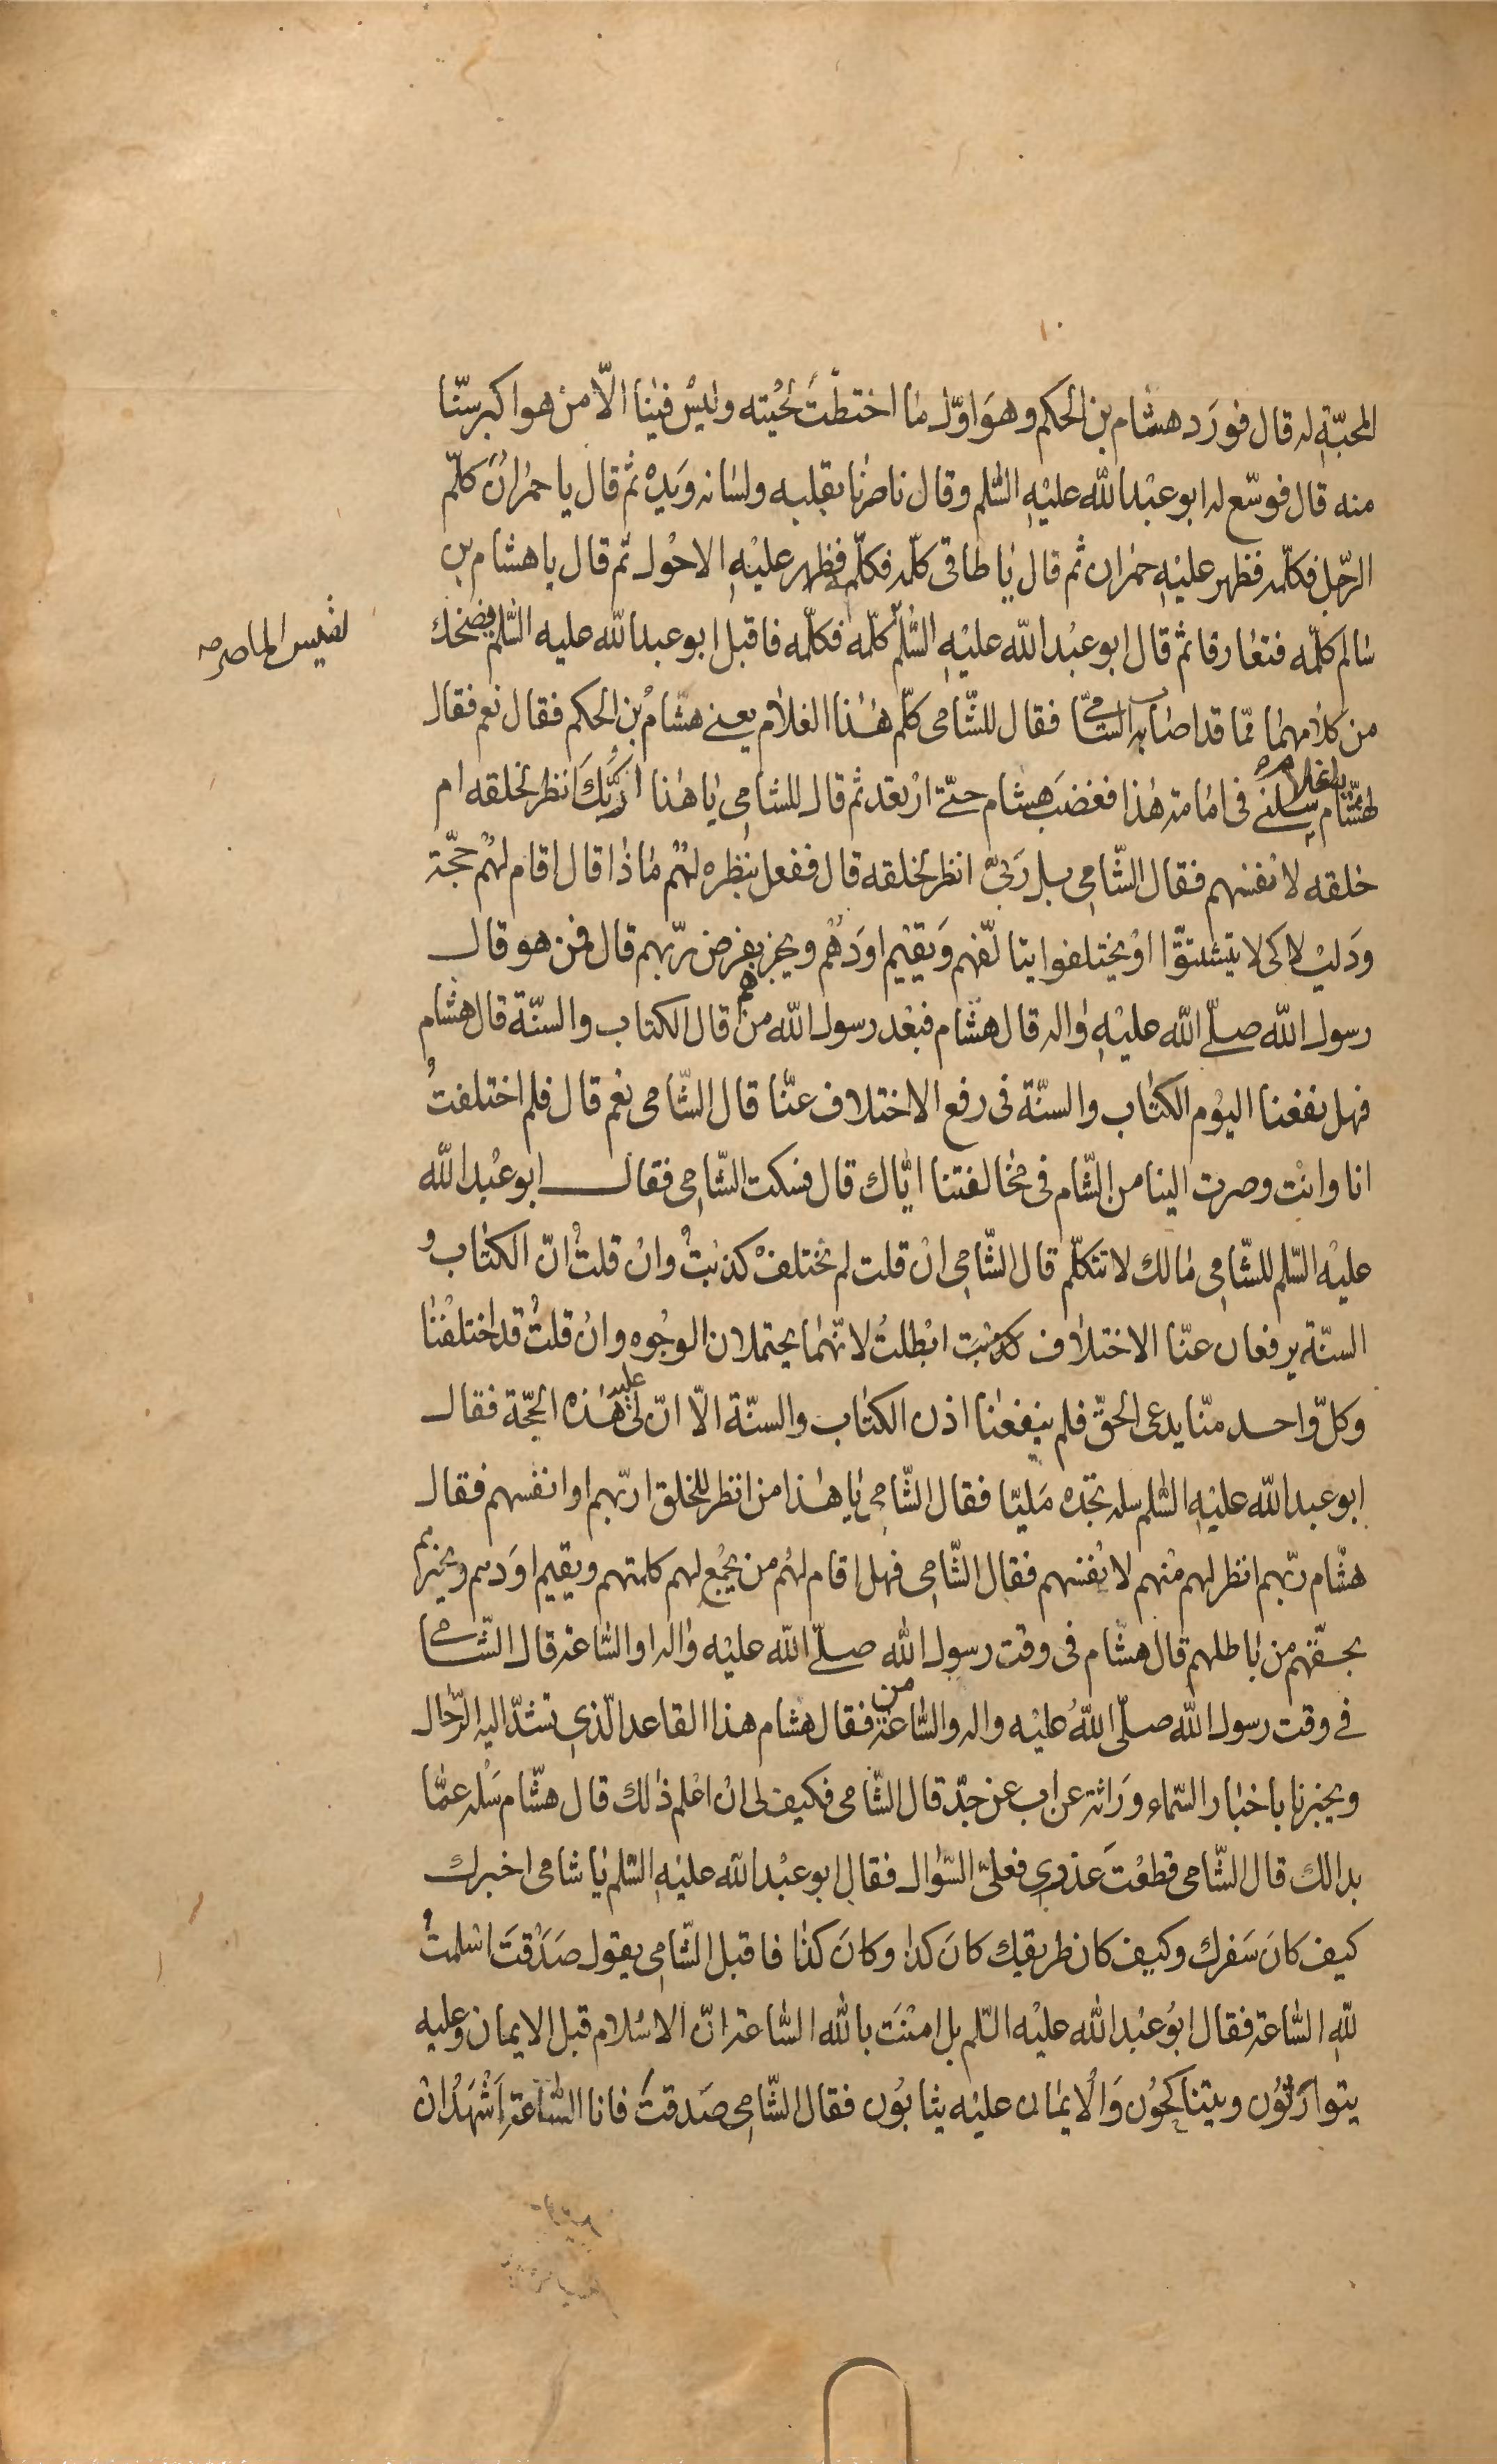 المحبّة له قال فورَد هشام بن الحكم وهوَ اوّل ما اختطّت لحْيته وليْس فينا الّا من هو اكبر سنّا
منه قال فوسّع له ابو عبْد الله عليْهِ السّلم وقال ناصرنا بقلبه ولسانه وَيَدِه ثم قال يا حمْرانُ كلّم
الرّجل فكلّمه فظهر عليْهِ حمران ثم قال يا طاقى كلّمه فكلّمه فظهر عليْهِ الاحْول ثم قال يا هشام بن
سالم كلّمه فتعارقا ثم قال ابو عبْد الله عليْهِ السّلم كلّمه فكلّمه فاقبل ابو عبد الله عليه السّلم يضحك
لقيس الماصر
من كلامهما ممّا قد اصاب الشّامى فقال للشّامى كلّم هٰذا الغلام يعنى هشامُ بن الحكم فقال نعم فقال
لهشام يا غلام سلنى فى امامة هٰذا فغضبَ هشام حتّى ارْتعد ثم قال للشامى يا هٰذا اربّكَ انظر لخلقه ام
خلقه لانفسهم فقال الشّامى بل ربّى انظر لخلقه قال ففعل بنظره لهُم ماذا قال اقام لهُم حجّة
ودَليْلا كى لا يتشتّتوا اوْ يختلفوا يتالّفهم وَيقيْم اوَدهُم ويخبرهم بفرض ربّهم قال فمن هو قال
رسول الله صلّى الله عليْهِ واٰله قال هشام فبعْد رسول الله من قال الكتاب والسنّة قال هشام
فهل نفعنا اليوْم الكتاب والسنّة فى رفع الاختلاف عنّا قال الشّامى نعم قال فلم اختلفتُ
انا وانْت وصرت الينا من الشّام فى مخالفتنا ايّاك قال فسكت الشّامى فقال ابو عبْد الله
عليْه السّلم للشّامى مالك لا تتكلّم قال الشّامى انْ قلت لم نختلفْ كذبْتُ وانْ قلتُ انّ الكتاب و
السنّة يرفعان عنّا الاختلاف ابْطلتُ لانّهما يحتملان الوجُوه وانْ قلتُ قد اختلفْنا
وكلّ واحد منّا يدعى الحقّ فلم ينفعْنا اذن الكتاب والسنّة الّا انّ لى عليه هٰذه الحجّة فقال
ابو عبد الله عليْهِ السّلم سله تجده مَليّا فقال الشّامى يا هٰذا من انظر للخلق اربّهم او انفسهم فقال
هشام ربّهم انظر لهم منْهم لانْفسهم فقال الشّامى فهل اقام لهُم من يجْمع لهم كلمتهم ويقيم اوَدهم ويخبرهم
بحقّهم من باطلهم قال هشام فى وقت رسول الله صلّى الله عليْه واٰله او السّاعة قال الشّامى
فى وقت رسول الله صلّى اللهُ عليْه واله والسّاعة من فقال هشام هذا القاعد الّذى تشدّ اليه الرّحال
ويخبرنا باخبار السّماء وَراثة عن اب عن جدّ قال الشّامى فكيف لى انْ اعْلم ذٰلك قال هشام سَلْه عمّا
بدالك قال الشّامى قطعْتَ عذرى فعلىّ السّؤال فقال ابو عبْد الله عليْهِ السّلم يا شامى اخبرك
كيف كانَ سَفرك وكيف كان طريقك كانَ كذا وكانَ كذا فاقبل الشّامى يقول صَدَقْتَ اسْلمتُ
للهِ السّاعة فقال ابُو عبْد الله عليْه السّلم بل اٰمنْتَ بالله السّاعة انّ الاسْلام قبل الايمان وعليه
يتوارَثوُن ويتناكحُون وَالْايمان عليْه يثابُون فقال الشّامى صَدقتَ فانا السّاعة اَشْهَدُ انْ